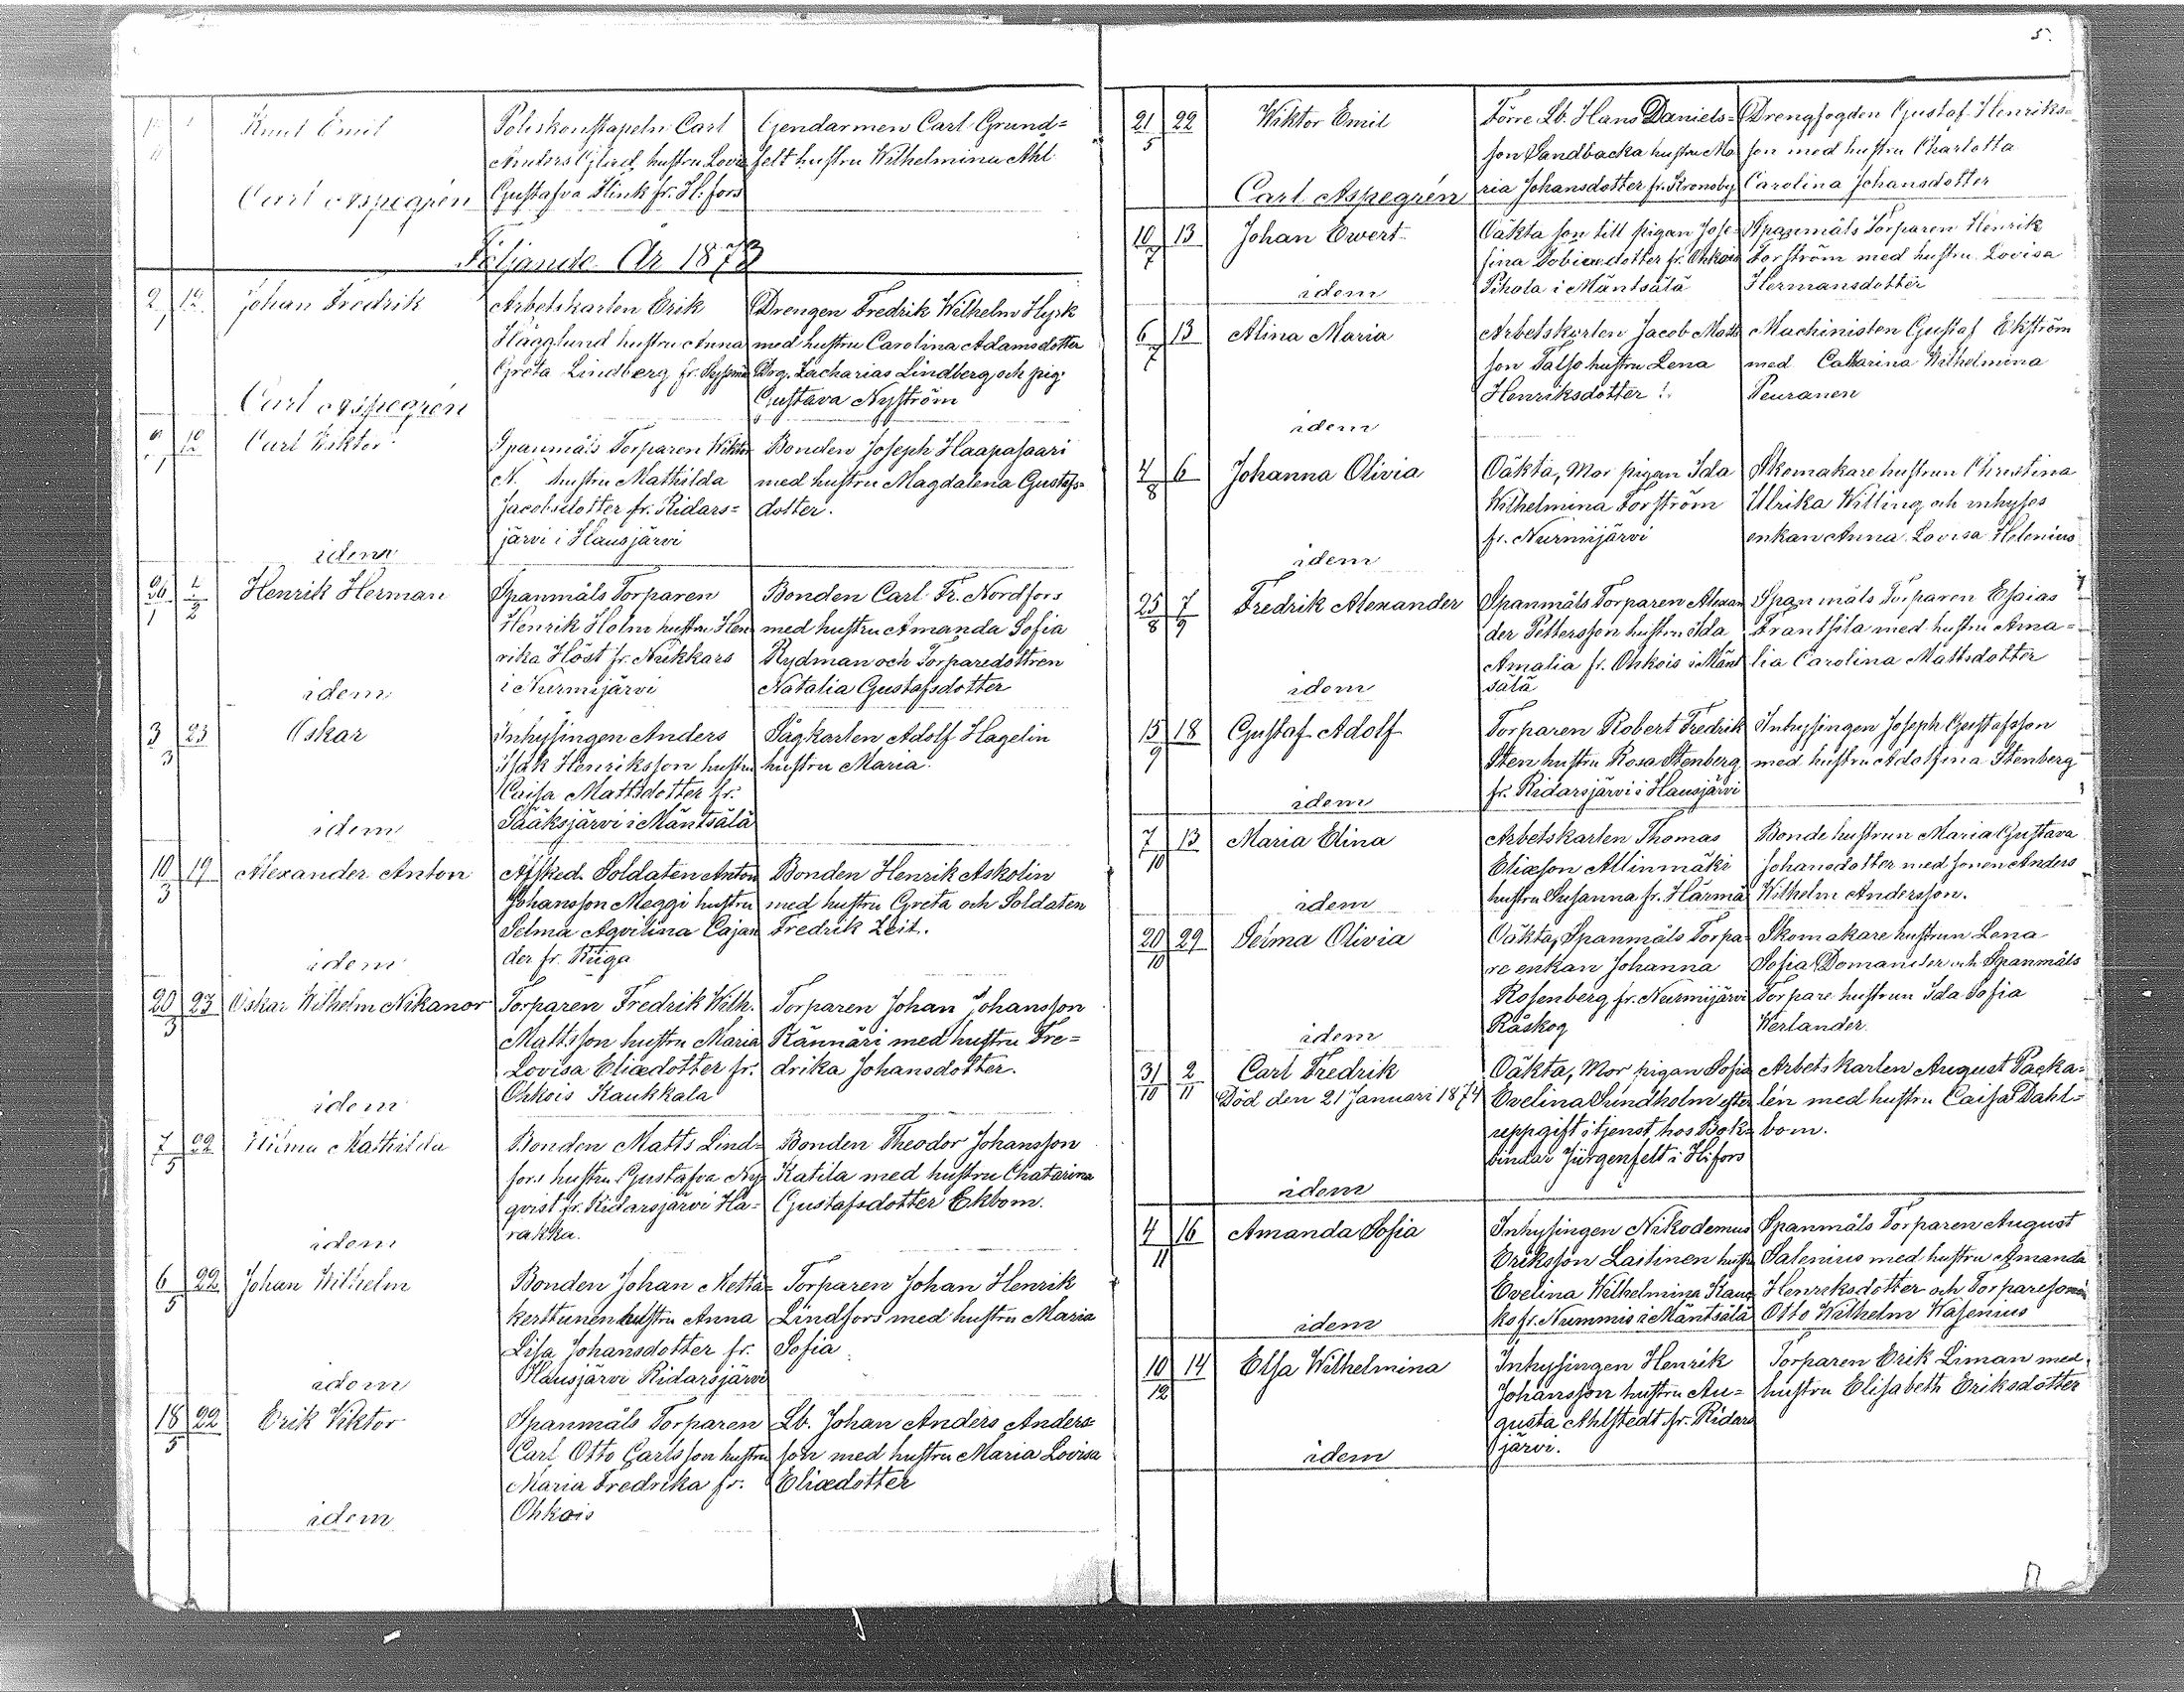 5.
Knut Emil
Poliskonstapeln Carl
Anders hustru Lovi
Gustafva Flink fr. H:fors
Gendarmen Carl Grund=
felt hustru Wilhelmina Ahl
Carl Aspegrén
Följande År 1873
2/1 12
Johan Fredrik
Arbetskarlen Erik
Hägglund hustru Anna
Greta Lindberg fr.
Drengen Fredrik Wilhelm Hyrk
med hustru Carolina Adamsdotter
Drg. Zacharias Lindberg och pig.
Gustava Nyström
Carl Aspegrén
Carl Wiktor
Spanmåls Torparen Wiktor
N. hustru Mathilda
Jacobsdotter fr. Ridars=
järvi i Hausjärvi
Bonden Joseph Haapasaari
med hustru Magdalena Gustafs=
dotter.
idem
26/1 1/2
Henrik Herman
Spanmåls Torparen
Henrik Holm hustru Hen
rika Höst fr. Nukkars
i Nurmijärvi
Bonden Carl Fr. Nordfors
med hustru Amanda Sofia
Rydman och Torparedottren
Natalia Gustafsdotter
idem
3/3 23
Oskar
Inhysingen Anders
Isak Henriksson hustru
Caisa Mattsdotter fr.
Sääksjärvi i Mäntsälä
Sågkarlen Adolf Hagelin
hustru Maria.
idem
10/3 19
Alexander Anton
Afsked. Soldaten Anton
Johansson Meggi hustru
Selma Aqvilina Cajan
der fr. Kuga
Bonden Henrik Askolin
med hustru Greta och Soldaten
Fredrik Zeit.
idem
20/3 23
Oskar Wilhelm Nikanor
Torparen Fredrik Wilh.
Mattsson hustru Maria
Lovisa Eliædotter fr.
Ohkois Kaukkala
Torparen Johan Johansson
Kännäri med hustru Fre=
drika Johansdotter.
idem
7/5 22
Hilma Mathilda
Bonden Matts Lind=
fors hustru Gustafva Ny
qvist fr. Ridarsjärvi Ha=
rakka.
Bonden Theodor Johansson
Katila med hustru Chatarina
Gustafsdotter Ekbom.
idem
6/5 22
Johan Wilhelm
Bonden Johan Mettä=
kerttunen hustru Anna
Lisa Johansdotter fr.
Hausjärvi Ridarsjärvi
Torparen Johan Henrik
Lindfors med hustru Maria
Sofia
idem
18/5 22
Erik Viktor
Spanmåls Torparen
Carl Otto Carlsson hustru
Maria Fredrika fr.
Ohkois
Lb. Johan Anders Anders=
son med hustru Maria Lovisa
Eliædotter
idem
21/5 22
Wiktor Emil
Förre Lb. Hans Daniels=
son Sandbacka hustru Ma
ria Johansdotter fr. Kronoby
Drengfogden Gustaf Henriks=
son med hustru Charlotta
Carolina Johansdotter
Carl Aspegrén
10/7 13
Johan Ewert
Oäkta son till pigan Jose=
fina Tobiædotter fr. Ohkois
Pihola i Mäntsälä
Spanmåls Torparen Henrik
Forström med hustru Lovisa
Hermansdotter
idem
6/7 13
Alina Maria
Arbetskarlen Jacob Matts
son Salso hustru Lena
Henriksdotter
Machinisten Gustaf Ekström
med Catharina Wilhelmina
Peuranen
idem
4/8 6
Johanna Olivia
Oäkta, Mor pigan Ida
Wilhelmina Forström
fr. Nurmijärvi
Skomakare hustrun Christina
Ulrika Willing och inhyses
enkan Anna Lovisa Helenius
idem
25/8 7/9
Fredrik Alexander
Spanmåls Torparen Alexan
der Pettersson hustru Ida
Amalia fr. Ohkois i Mänt
sälä
Spanmåls Torparen Esaias
Frantsila med hustru Ama=
lia Carolina Mattsdotter
idem
15/9 18
Gustaf Adolf
Torparen Robert Fredrik
Sten hustru Rosa Stenberg
fr. Ridarsjärvi i Hausjärvi
Inhysingen Joseph Gustafsson
med hustru Adolfina Stenberg
idem
7/10 13
Maria Elina
Arbetskarlen Thomas
Eliæson Allinmäki
hustru Susanna fr. Härmä
Bonde hustrun Maria Gustava
Johansdotter med sonen Anders
Wilhelm Andersson.
idem
20/10 29
Selma Olivia
Oäkta, Spanmåls Torpa=
re enkan Johanna
Rosenberg fr. Nurmijärvi
Råskog
Skomakare hustrun Lena
Sofia Domander och Spanmåls
Torpare hustrun Ida Sofia
Werlander.
idem
31/10 2/11
Carl Fredrik
Död den 21 Januari 1874
Oäkta, Mor pigan Sofia
Evelina Lindholm efter
uppgift i tjenst hos Bok=
bindar Jürgenfelt i H:fors
Arbetskarlen August Packa=
lén med hustru Caisa Dahl=
bom.
idem
4/11 16
Amanda Sofia
Inhysingen Nikodemus
Eriksson Laitinen hustr
Evelina Wilhelmina Kau
ko fr. Nummis i Mäntsälä
Spanmåls Torparen August
Salenius med hustru Amanda
Henriksdotter och Torparesonen
Otto Wilhelm Wasenius
idem
10/12 14
Elsa Wilhelmina
Inhysingen Henrik
Johansson hustru Au=
gusta Ahlstedt fr. Ridars
järvi.
Torparen Erik Liman med
hustru Elisabeth Eriksdotter
idem